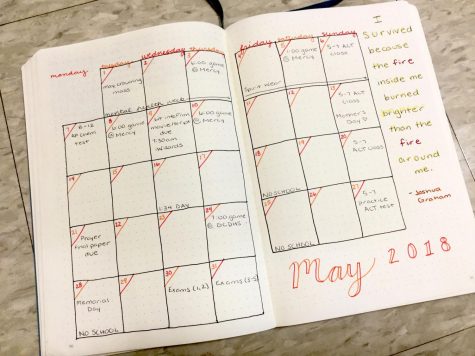 monday tuesday wednesday thursday
1
may crowning
mass
2
3
6:00 game
@ Mercy
mental health week
7
8-12
AP exam
test
8
6:00 game
@ Mercy
9
movie script
due
10
14
15
16
1:34 DAY
17
21
Prayer
final paper
due
22
23
24
7:00 game
@ DCDHS
28
Memorial
Day
NO SCHOOL
29
30
Exams (1,2)
31
Exams (3-5)
friday saturday sunday
4
Spirit Wear
5
6
5-7 ALT
class
11
12
13
5-7 ALT
class
Mother's
Day
18
NO SCHOOL
19
20
5-7
ALT class
25
NO SCHOOL
26
27
5-7
Practice
ALT test
I
survived
because
the fire
inside me
burned
brighter
than the
fire
around
me.
-Joshua
Graham
May 2018